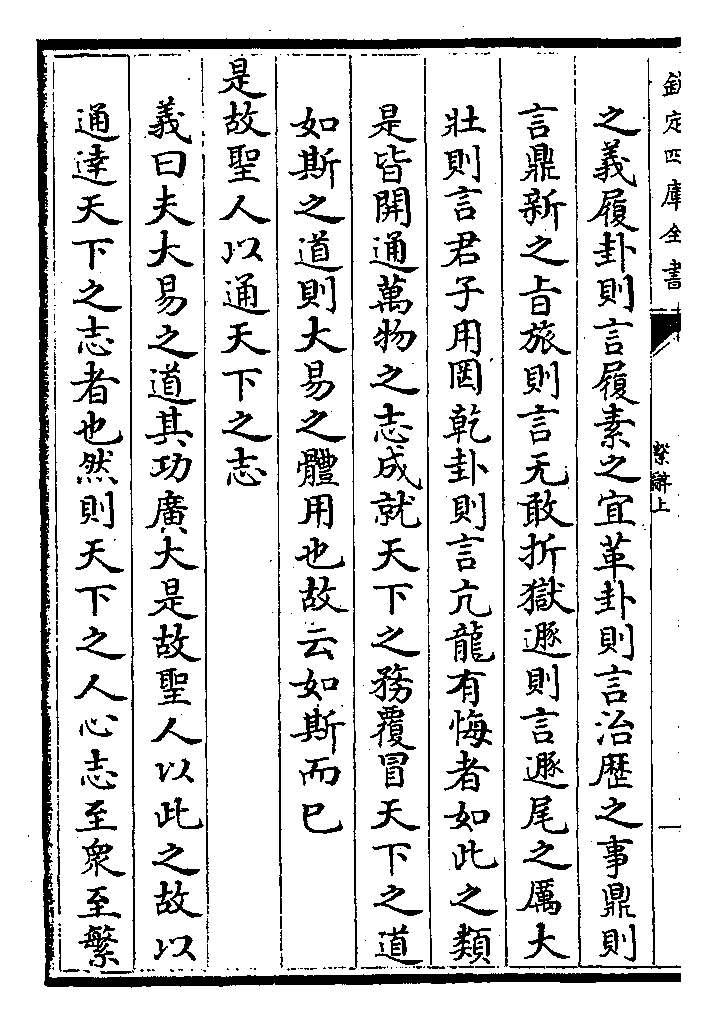 欽定四庫全書
繫辭上
之義履卦則言履素之宜革卦則言治歴之事鼎則
言鼎新之㫖旅則言无敢折獄遯則言遯尾之厲大
壯則言君子用罔乾卦則言亢龍有悔者如此之類
是皆開通萬物之志成就天下之務覆冒天下之道
如斯之道則大易之體用也故云如斯而已
是故聖人以通天下之志
義曰夫大易之道其功廣大是故聖人以此之故以
通達天下之志者也然則天下之人心志至衆至繁